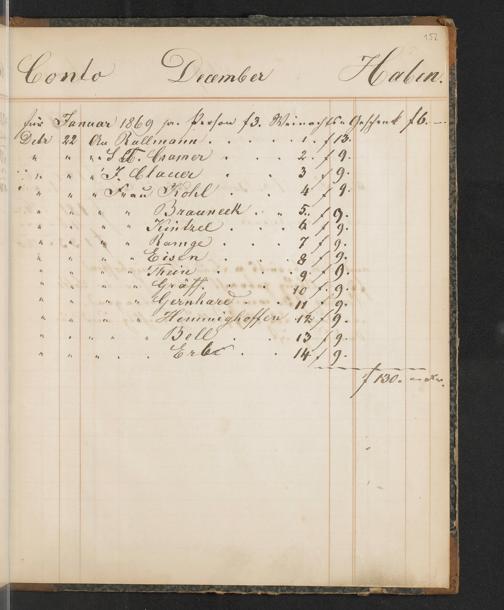 152
Conto December Haben.
für Januar 1869 pr. Person f3. Weinachts Geschenk f6. —
Debr 22 An Rallmann . . . . 1. f 13.
" " " " Cramer . . . 2. f 9.
" " " J. Clauer . . . 3 f 9.
" " " Frau Kohl . . 4 f 9.
" " " " Brauneck . . 5. f 9.
" " " " Kintzel . . 6 f 9.
" " " " Ramge . . 7 f 9.
" " " " Eisen . . . 8 f 9.
" " " " Thein . . . 9 f 9.
" " " " Gräff . . . 10 f. 9.
" " " " Gernhard . . 11 f 9.
" " " " Hemmighoffen 12 f 9.
" " " " Boll . . . 13 f 9.
" " " . . Erbe . . . 14 f 9.
f 130.